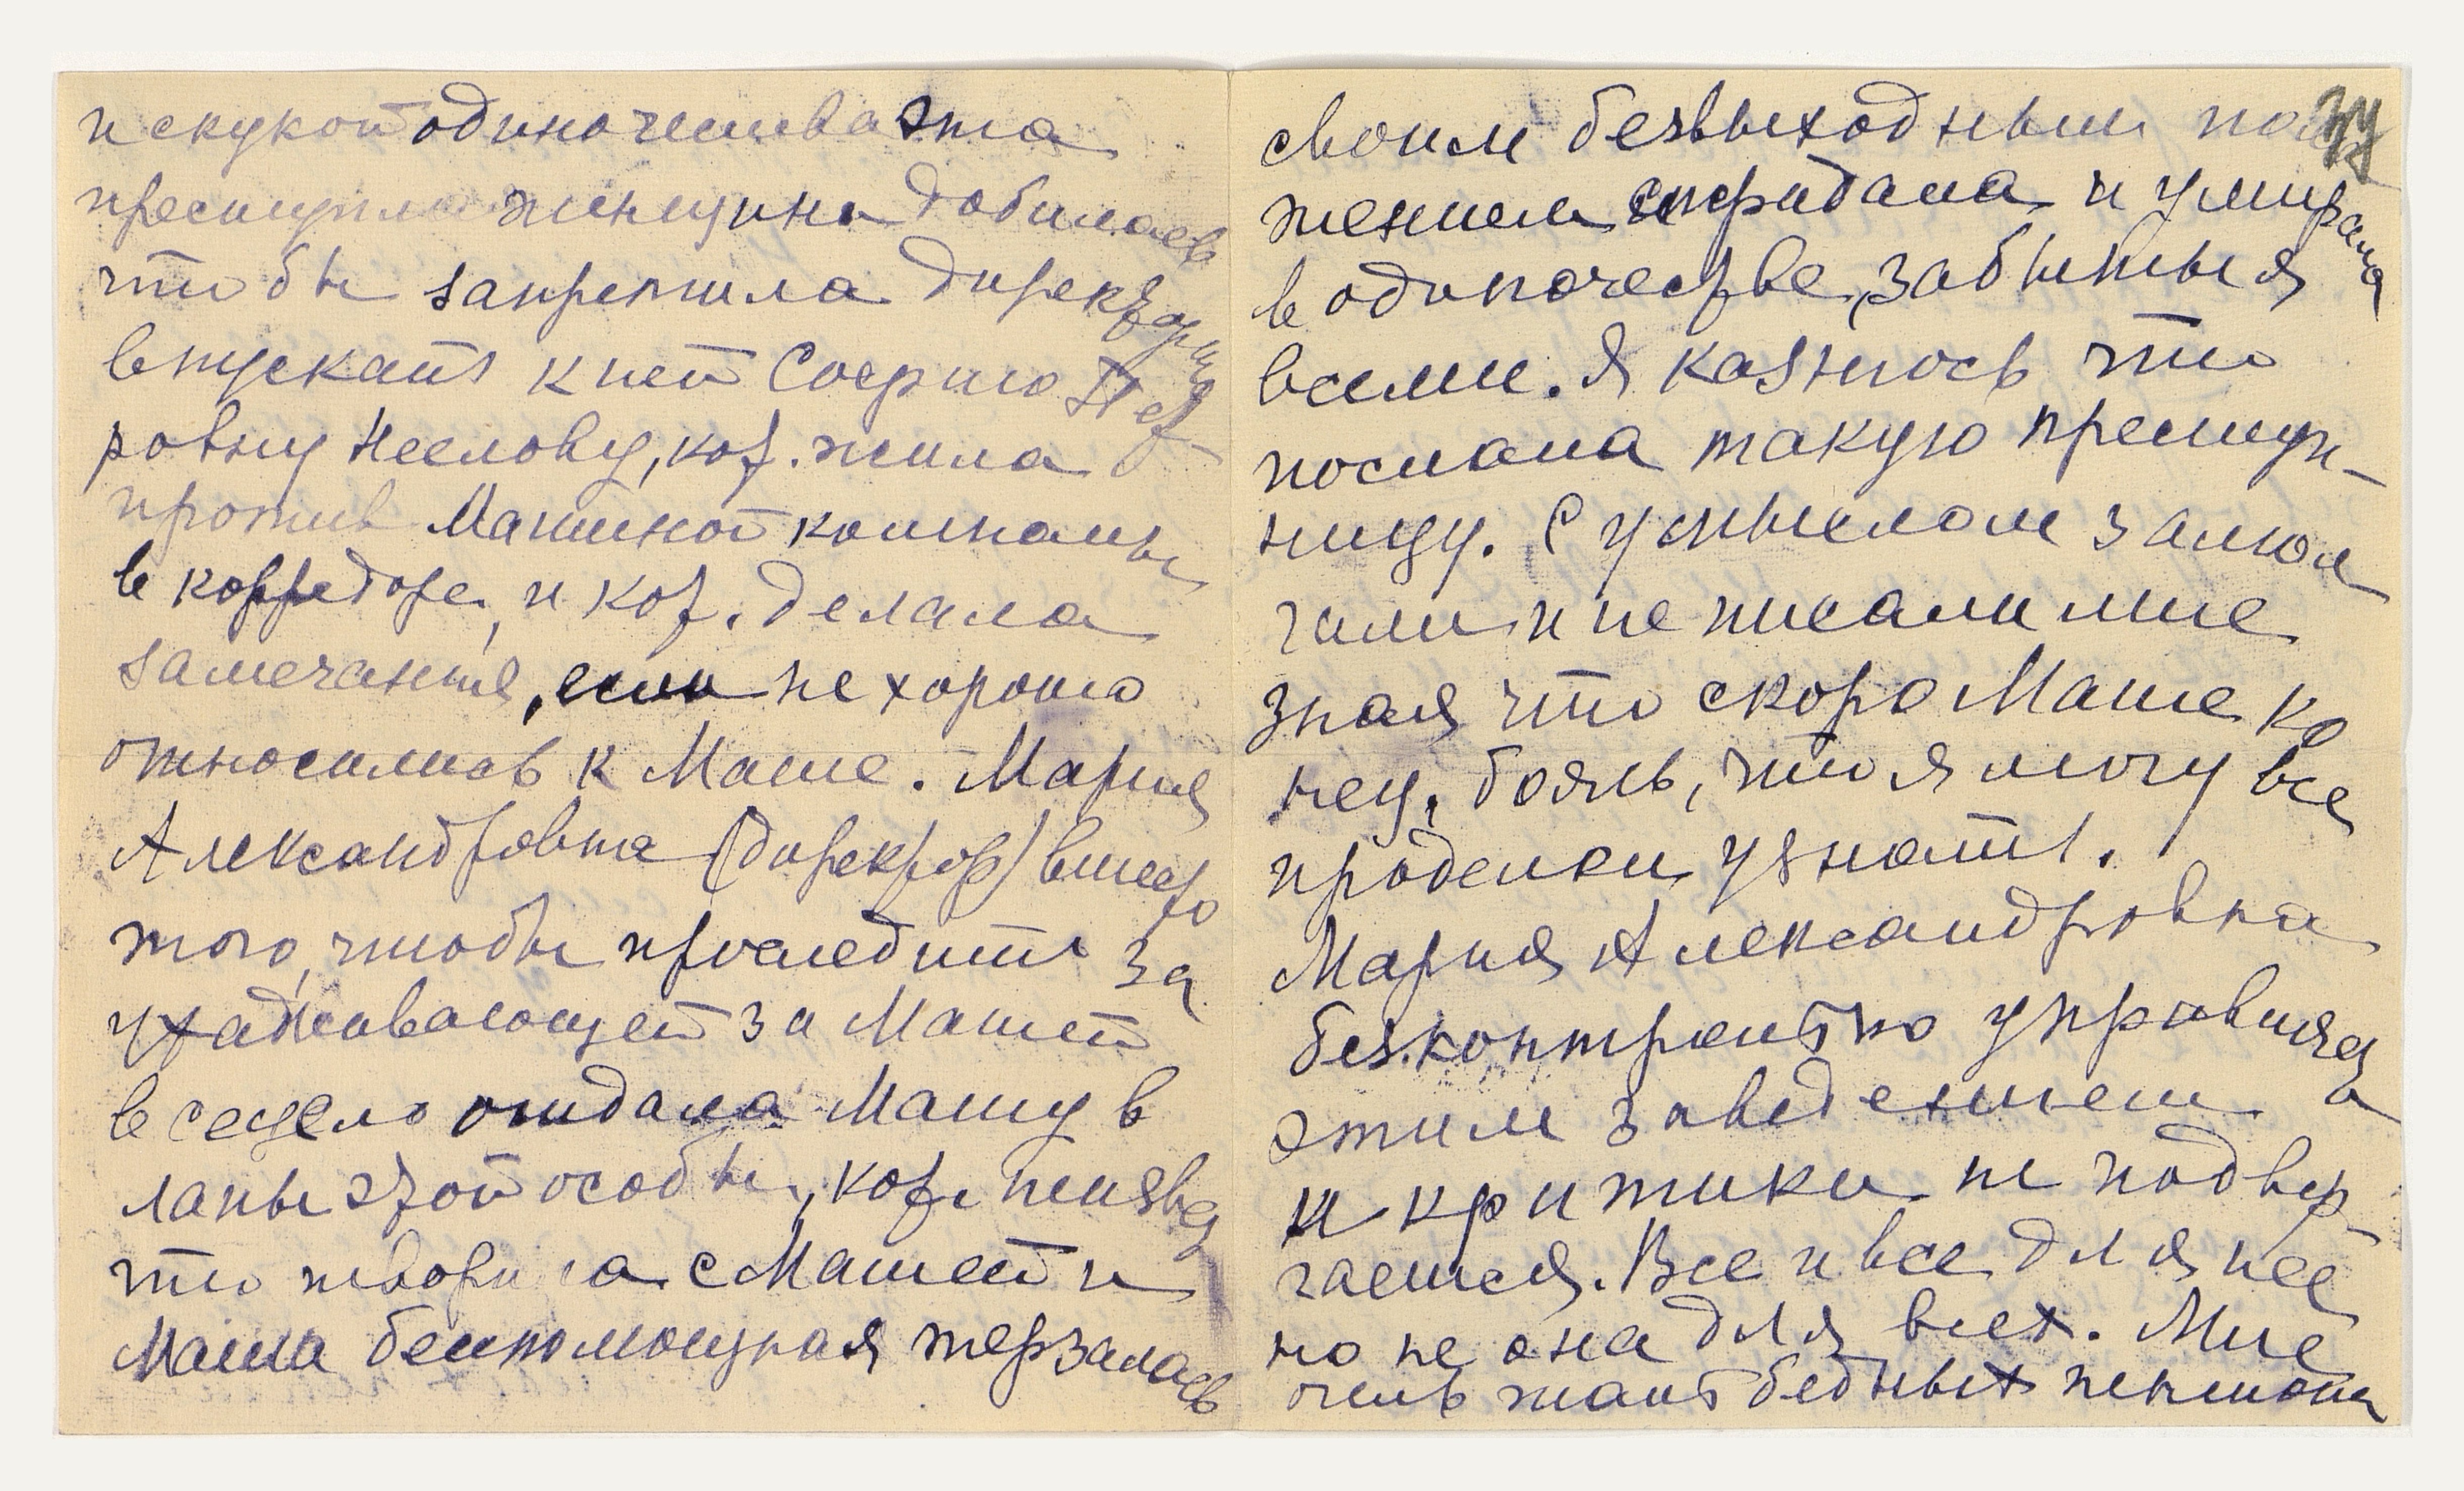 и скукой одиночества эта
преступная женщина добилась
что бы запретила директорша
впускать к ней Софию Пет-
ровну Неелову, кот. жила
против Машиной комнаты
в корридоре, и кот. делала
замечания, если не хорошо
относились к Маше. Мария
Александровна (директор) вместо
того, чтобы проследить за
ухаживающей за Машей
всецело отдала Машу в
лапы этой особы, кот.
что творила с Машей и
Маша беспомощная терзалась
своим безвыходным поло
жением страдала и умирала
в одиночестве, забытая
всеми. Я казнюсь что
послала такую преступ-
ницу. С умыслом замол
чали и не писали мне
зная что скоро Маше ко
нец, боясь, что я могу все
проделки узнать.
Мария Александровна
безконтрольно управляет
этим заведением а
и критики не подвер-
гается. Все и все для неё
но не она для всех. Мне
очень жаль бедных пенсион
34